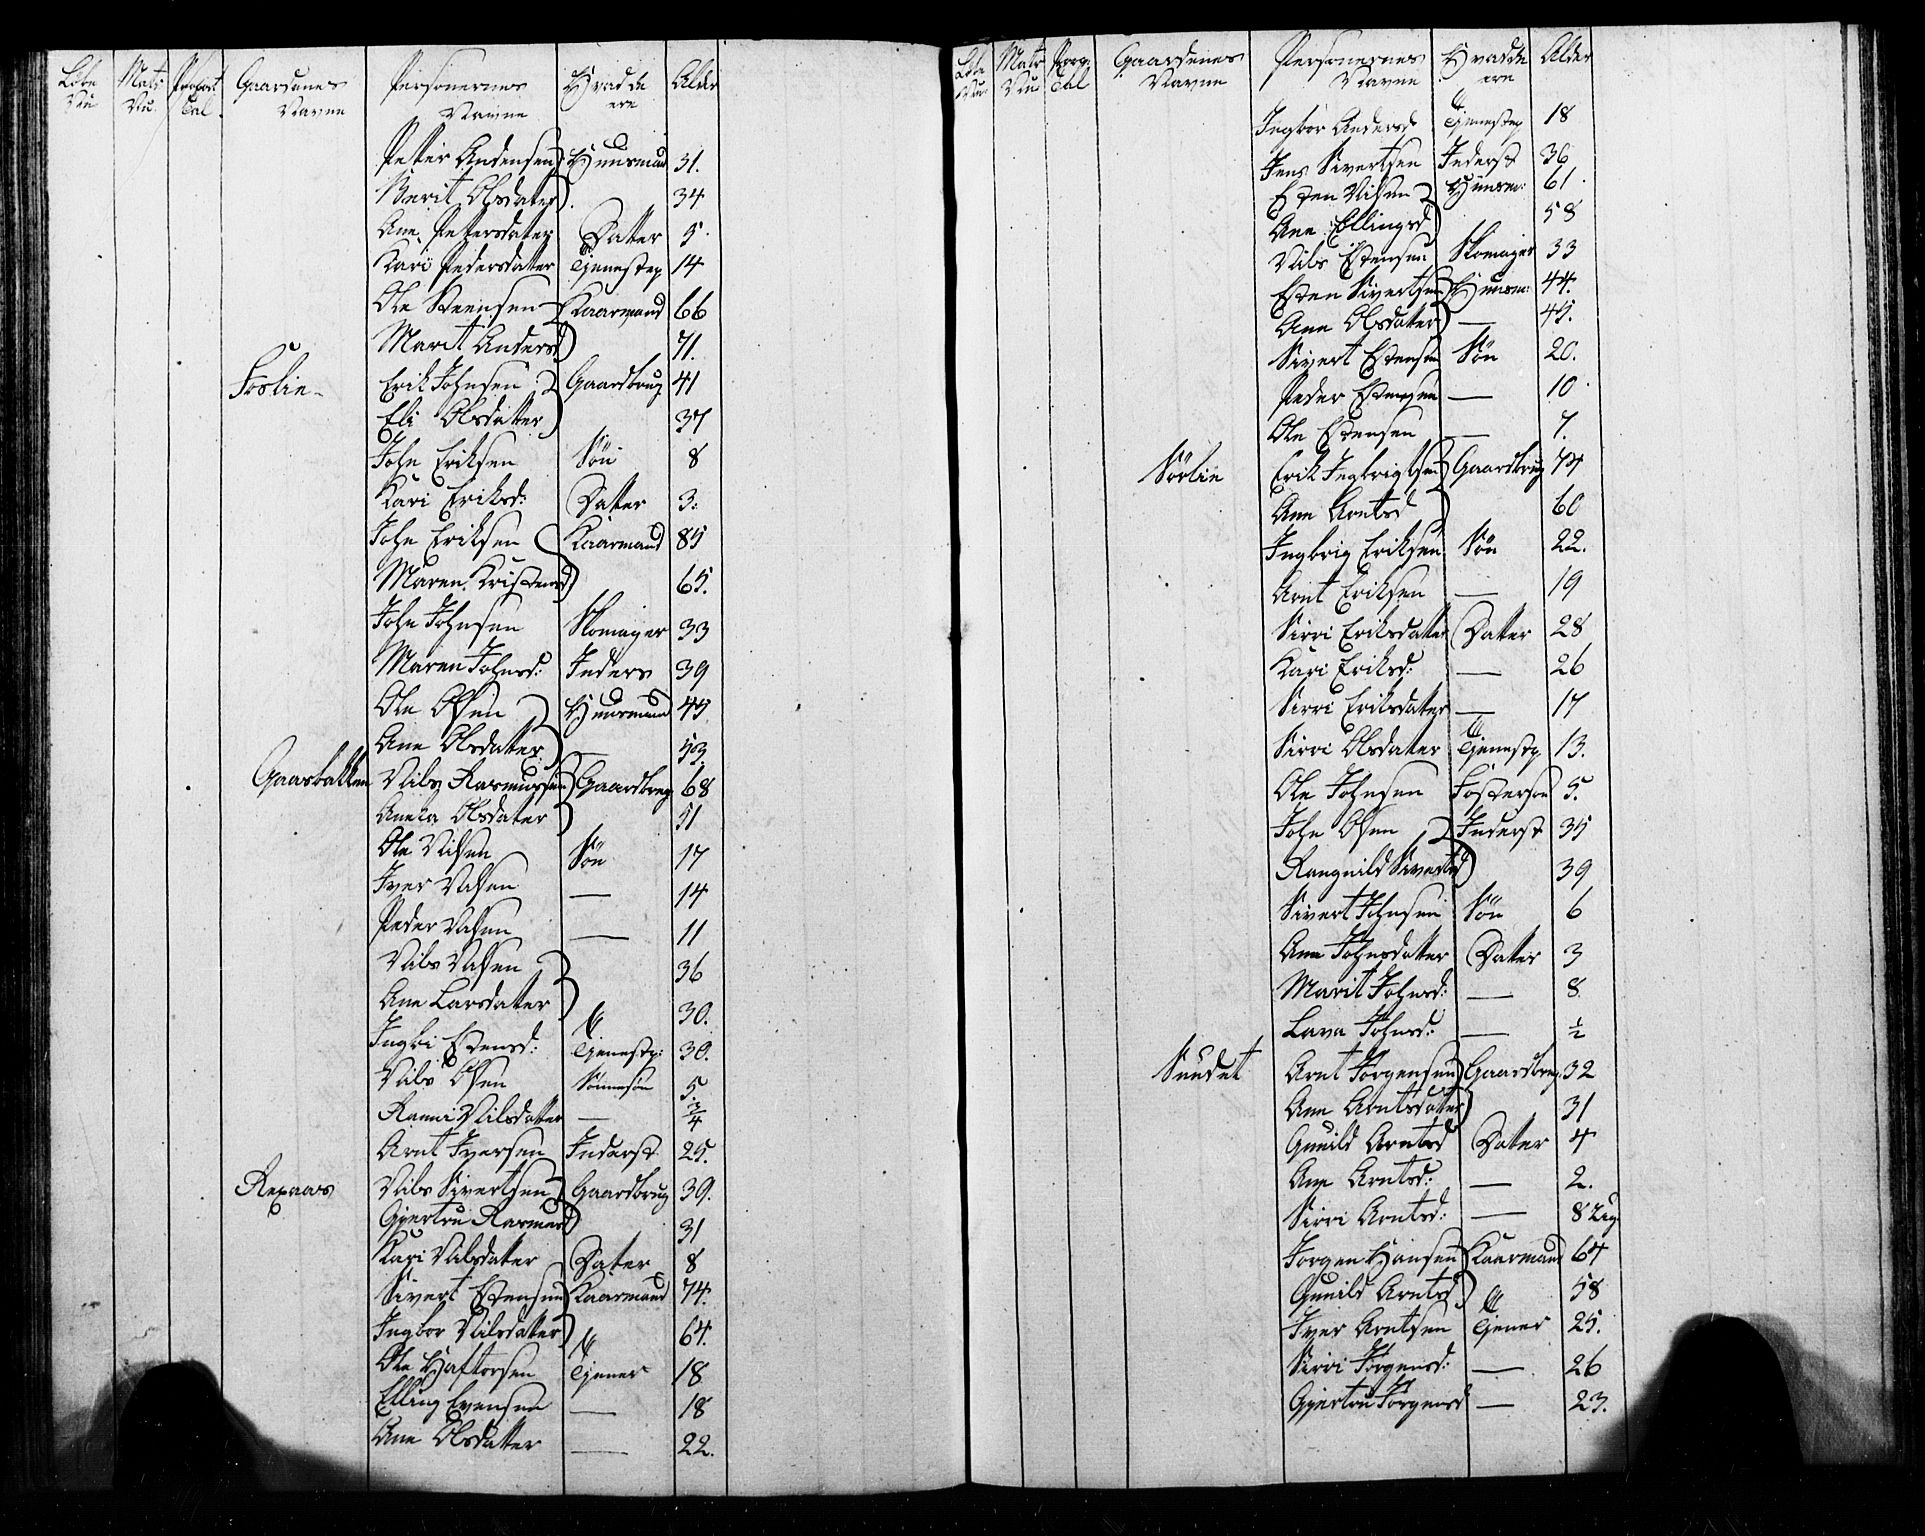 Løbe Nu Matr Nu. Proport Tal Gaardenes Navne Personernes Navne Hvad de ere Alder
Petter Andensen Huusmand 31.
Berit Olsdater 34
Ane Pettersdater Datter 5
Kari Pedersdatter Tjenestep 14
Ole Steensen Kaarmand 66
Marit Andersd 71.
Foslie Erik Johnsen Gaardbrug 41
Eli Olsdatter 37
John Eriksen Søn 8
Kari Eriksd: Datter 3.
John Eriksen Kaarmand 85
Maren Kristensd 65.
John Johnsen Skomager 33
Maren Johnsd: Inders 39
Ole Olsen Huusmand 45
Ane Olsdatter — 53.
Gaasbakken Nils Rasmussen Gaardbrug 68
Aneka Olsdater 51
Ole Nilsen Søn 17
Iver Nilsen — 14
Peder Nilsen — 11
Nils Nilsen 36
Ane Larsdatter 30.
Ingbi Estensd: Tjenestp: 30.
Nils Olsen Sønnesøn 5.
Ranni Nilsdatter — 3/4
Arnt Iversen Inderst 25.
Rexaas Nils Sivertsen Gaardbrug 39.
Gjertru Rasmusd 31
Kari Nilsdatter Dater 8
Sivert Estensen Kaarmand 74.
Ingbor Nilsdatter 64.
Ole Haftorsen Tjener 18
Elling Evensen — 18
Ane Olsdatter — 22.
Løbe Nu: Matr Nu Prop: Tal Gaardenes Navne Personernes Navne Hvad de ere Alder
Ingbor Andersd Tjenestep 18
Jens Sivertsen Inderst 36
Esten Nilsen Huusm: 61.
Ane Ellingsd 58
Nils Estensen Skomager 33
Esten Sivertsen Huusm: 44.
Ane Olsdatter — 45.
Sivert Estensen Søn 20.
Peder Estensen — 10
Ole Estensen — 7.
Sørlie Erik Ingbrigtsen Gaardbrug 74
Ane Arntsd 60
Ingbrig Eriksen Søn 22.
Arnt Eriksen — 19
Sirri Eriksdatter Datter 28
Kari Eriksd: — 26
Sirri Eriksdater — 17
Sirri Olsdatter Tjenestp 13.
Ole Johnsen Fostersøn 5.
John Olsen Inderst 35
Rangnild Sivertsd 39
Sivert Johnsen Søn 6
Ane Johnsdatter Dater 3
Marit Johnsd: — 8.
Lava Johnsd: — 1/2
Sundet Arnt Jørgensen Gaardbrug. 32
Ane Arntsdatter 31
Gunild Arntsd Dater 4
Ane Arntsd: — 2.
Sirri Arntsd: — 8 Ug
Jørgen Hansen Kaarmand 64
Gunild Arntsd 58
Iver Arntsen Tjener 25.
Sirri Jørgensd: — 26
Gjertru Jørgensd — 23.